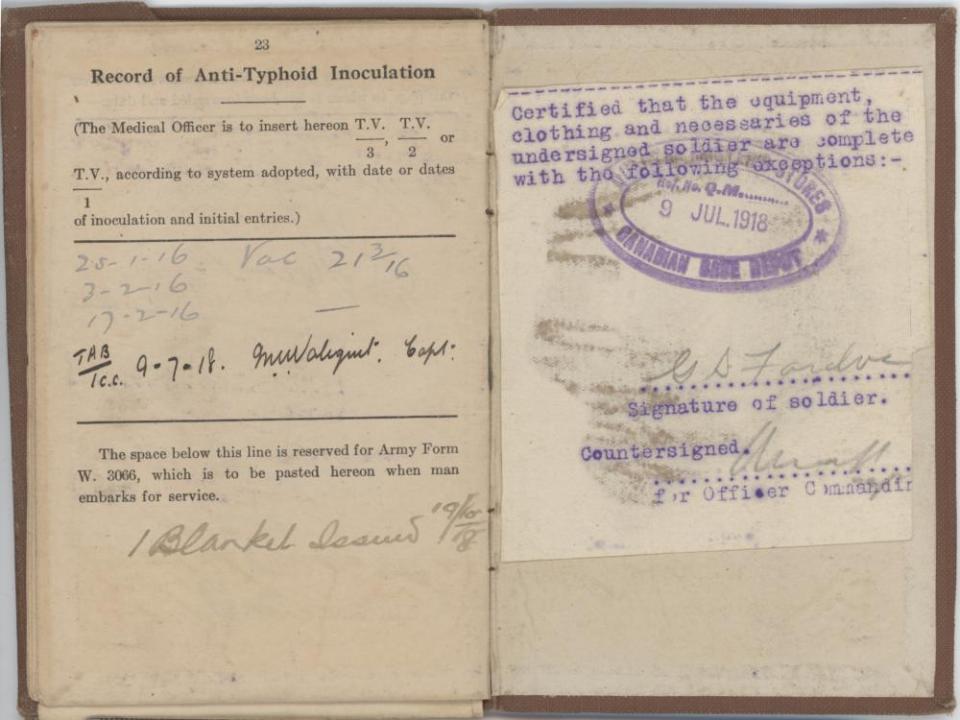 23
Record of Anti-Typhoid Inoculation
(The Medical Officer is to insert hereon T.V./3, T.V./2 or
T.V./1, according to system adopted, with date or dates
of inoculation and initial entries.)
25-1-16 Vac 21 3/16
3-2-16
17-2-16 —
TAB/1 c.c. 9-7-18. Capt.
The space below this line is reserved for Army Form
W. 3066, which is to be pasted hereon when man
embarks for service.
1 Blanket Issued
Certified that the equipment,
clothing and necessaries of the
undersigned soldier are complete
with the following exceptions:-
STORES
9 JUL. 1918
CANADIAN BASE DEPOT
G S
Signature of soldier.
Countersigned.
for Officer Commandin